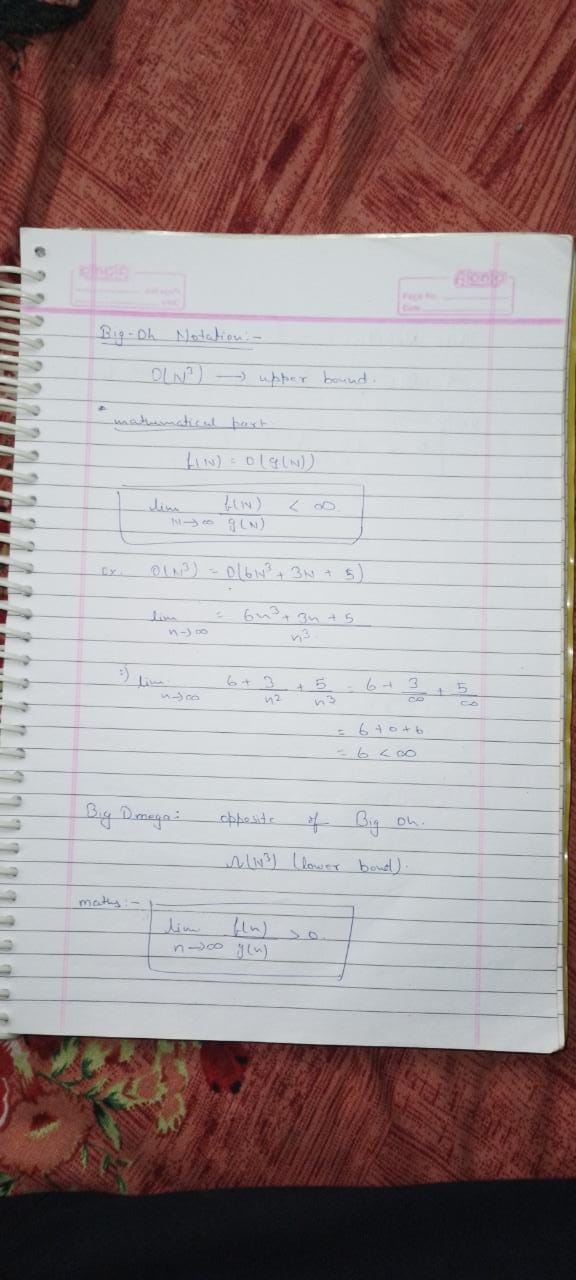 Page No.
Date
Big-Oh Notation:-
O(N³) → upper bound.
* mathematical part
f(N) = O(g(N))
lim N→∞ f(N)/g(N) < ∞.
Ex. O(N³) = O(6N³ + 3N + 5)
lim n→∞ = 6n³ + 3n + 5 / n³
=) lim n→∞ 6 + 3/n² + 5/n³ = 6 + 3/∞ + 5/∞
= 6 + 0 + 6
= 6 < ∞
Big Omega: opposite of Big Oh.
Ω(N³) (lower bond).
maths:-
lim n→∞ f(n)/g(n) > 0